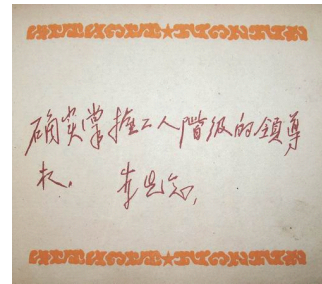 确实掌握工人階级的領導
权。 李先念,